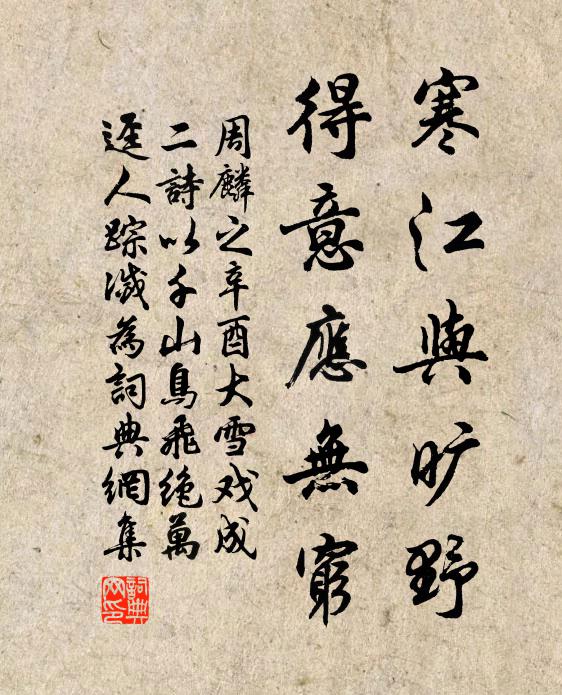 寒江與旷野
得意應無窮
周麟之辛酉大雪戏成
二詩以千山鳥飛绝萬
逕人踪滅為詞典網集
詞典网印